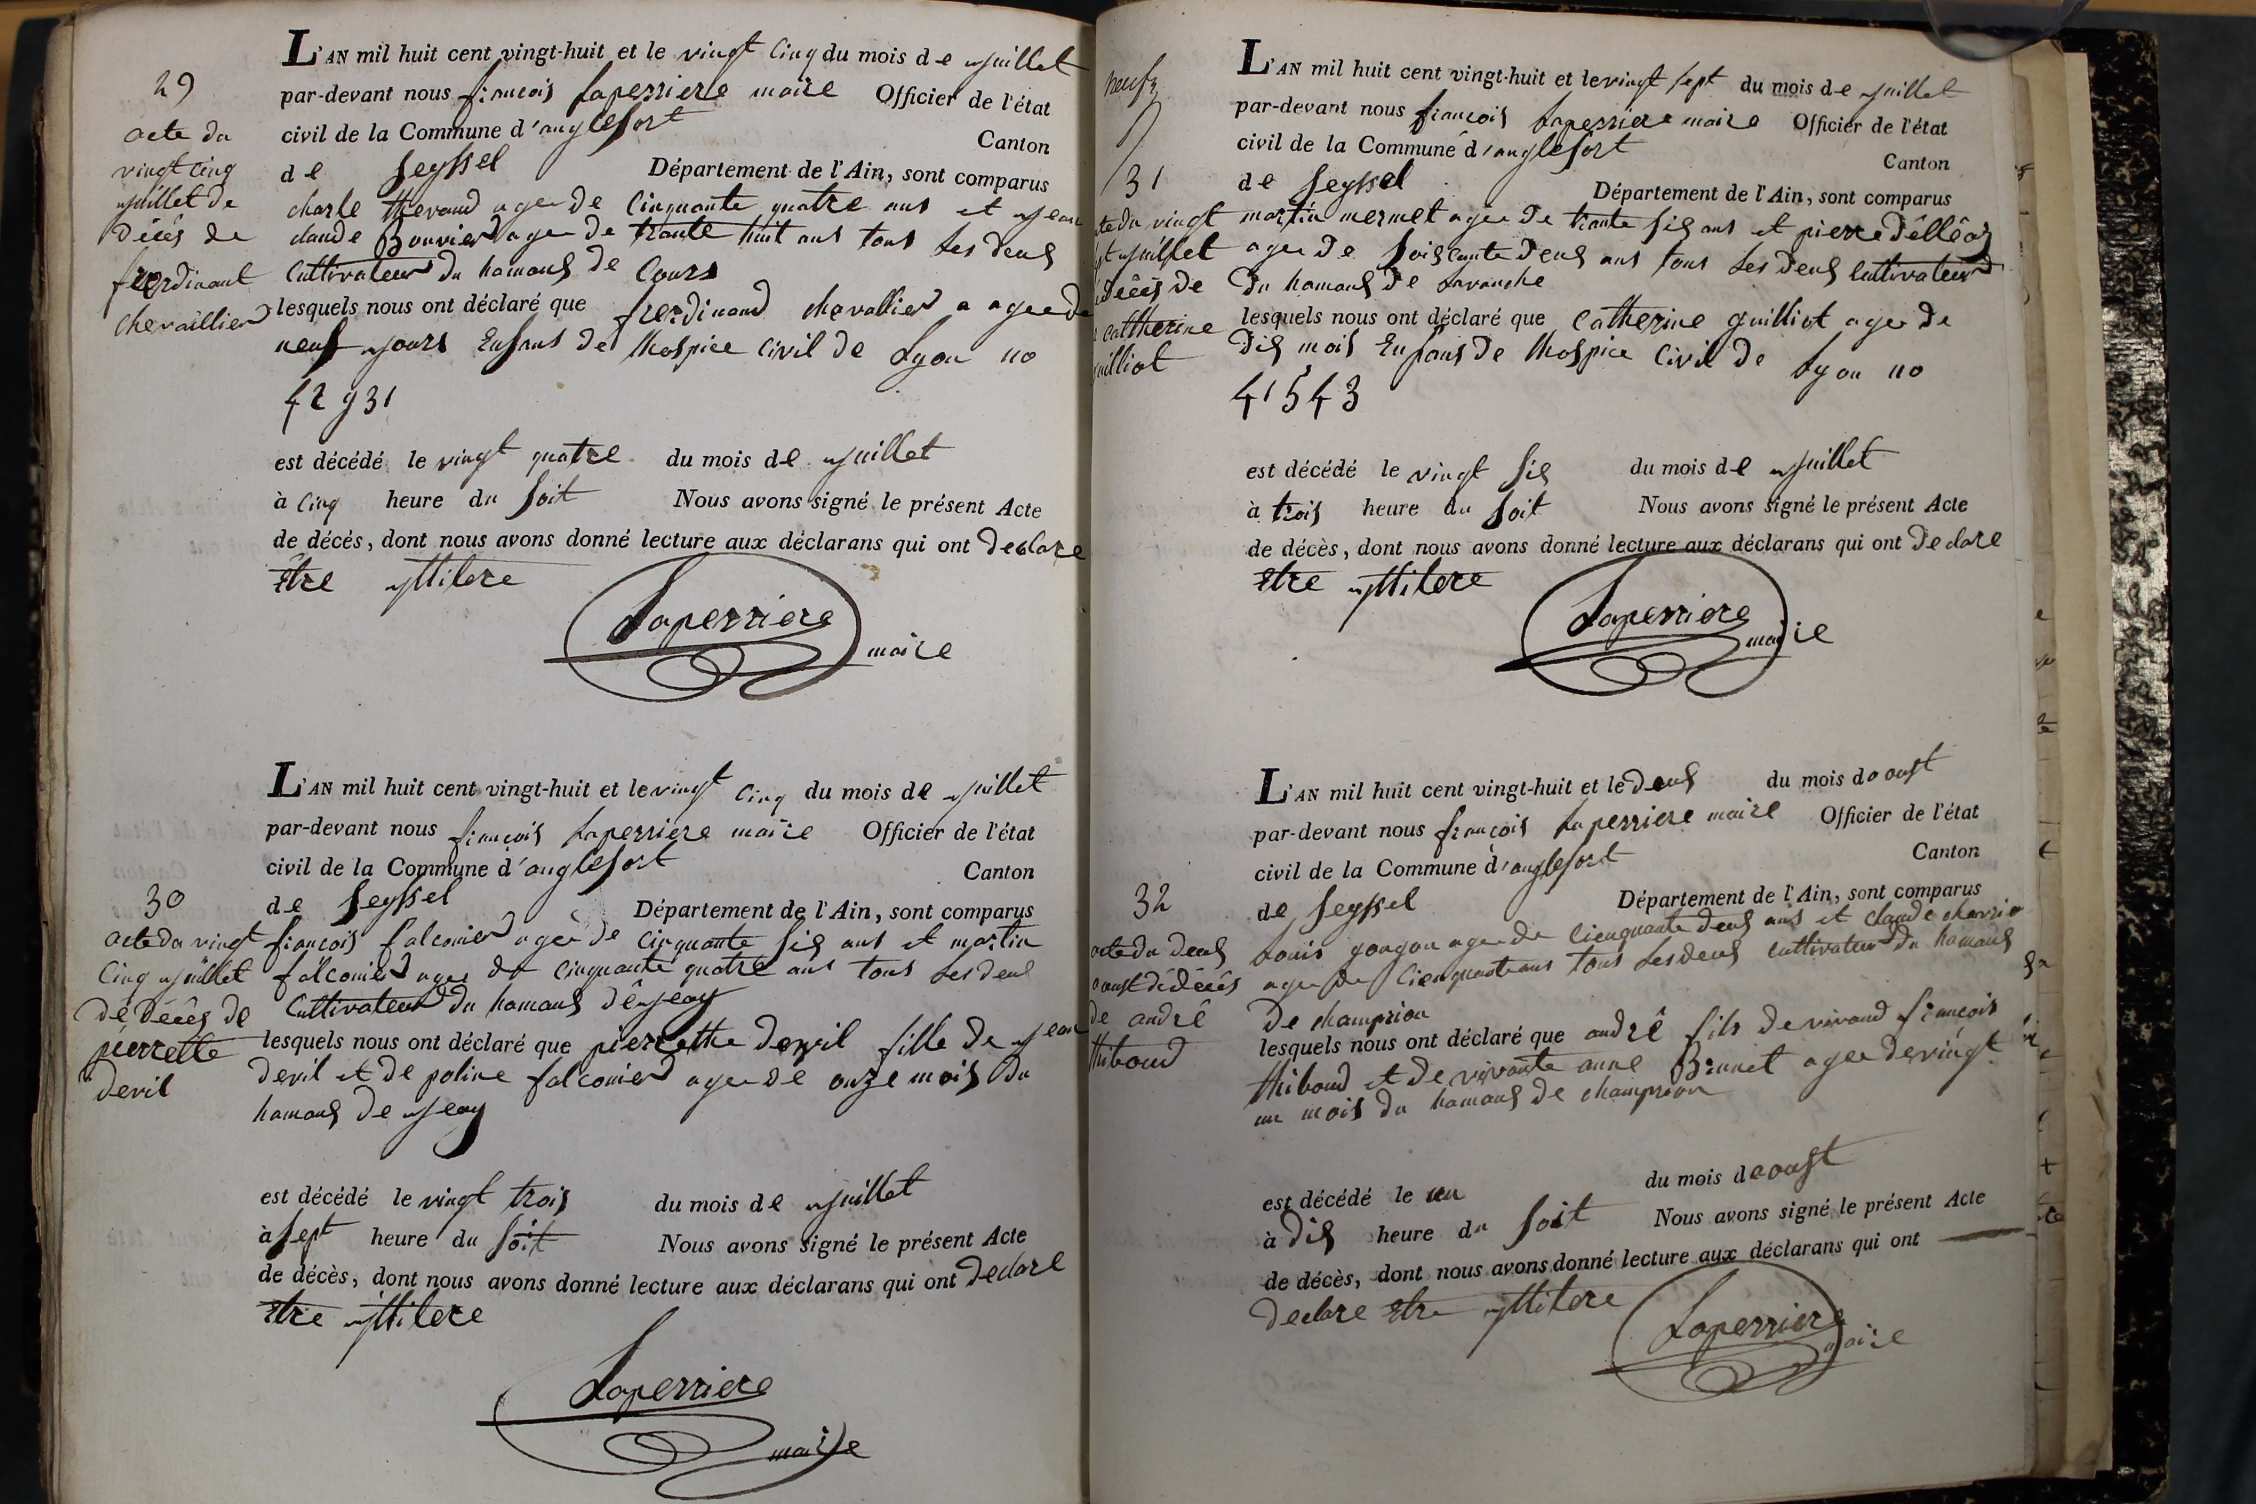 29
acte du
vingt cinq
juillet de
décês de
ferdinant
chevaillier
L'AN mil huit cent vingt-huit et le vingt cinq du mois de juillet
par-devant nous françois Laperriere maire Officier de l'état
civil de la Commune d'anglefort Canton
de Seyssel Département de l'Ain, sont comparus
charle thevand agee de Cinquante quatre ans et jean
claude Bouvier agee de trante huit ans tous Les deus
Cultivateur du hamaus de Cours
lesquels nous ont déclaré que ferdinand chevallier a agee de
neuf jours Enfant de Lhospice Civil de Lyon no
42931
est décédé le vingt quatre du mois de juillet
à Cinq heure du Soit Nous avons signé le présent Acte
de décés, dont nous avons donné lecture aux déclarans qui ont Declare
être jllitere
Laperriere
maire
30
acte du vingt
Cinq juillet
de décês de
pierrette
devil
L'AN mil huit cent vingt-huit et le vingt Cinq du mois de juillet
par-devant nous françois Laperriere maire Officier de l'état
civil de la Commune d'anglefort Canton
de Seyssel Département de l'Ain, sont comparus
françois falconier agee de Cinquante Sis ans et martin
falconier agee de Cinquante quatre ans tous Les deus
Cultivateur du hamaus de jeay
lesquels nous ont déclaré que pierrette devil fille de jean
devil et de poline falconier agee de onze mois du
hamaus de jeay
est décédé le vingt trois du mois de juillet
à Sept heure du Soit Nous avons signé le présent Acte
de décès, dont nous avons donné lecture aux déclarans qui ont Declare
être jllitere
Laperriere
maire
neuf
31
acte du vingt
sept juillet
décês de
catherine
guilliot
L'AN mil huit cent vingt-huit et le vingt sept du mois de juillet
par-devant nous françois Laperriere maire Officier de l'état
civil de la Commune d'anglefort Canton
de Seyssel Département de l'Ain, sont comparus
martin mermet agee de trante Sis ans et pierre
agee de Soiscante deus ans tous Les deus Cultivateur
du hamaus de Lavanche
lesquels nous ont déclaré que Catherine guilliot agee de
dis mois Enfans de Lhospice Civil de Lyon no
41543
est décédé le vingt Sis du mois de juillet
à trois heure du Soit Nous avons signé le présent Acte
de décès, dont nous avons donné lecture aux déclarans qui ont Declare
être jllitere
Laperriere
maire
32
acte du deus
aoust de décês
de andrê
thiboud
L'AN mil huit cent vingt-huit et le deus du mois d aoust
par-devant nous françois Laperriere maire Officier de l'état
civil de la Commune d'anglefort Canton
de Seyssel Département de l'Ain, sont comparus
Louis gongon agee de Cienquante deus ans et claude
agee de Cienquante ans tous Les deus Cultivateur du hamaus
De champrion
lesquels nous ont déclaré que andrê fils de vivand françois
thiboud et de vivante anne Brunet agee de vingt
un mois du hamaus de champrion
est décédé le un du mois d aoust
à Dis heure du Soit Nous avons signé le présent Acte
de décès, dont nous avons donné lecture aux déclarans qui ont
Declare être jllitere
Laperriere
maire